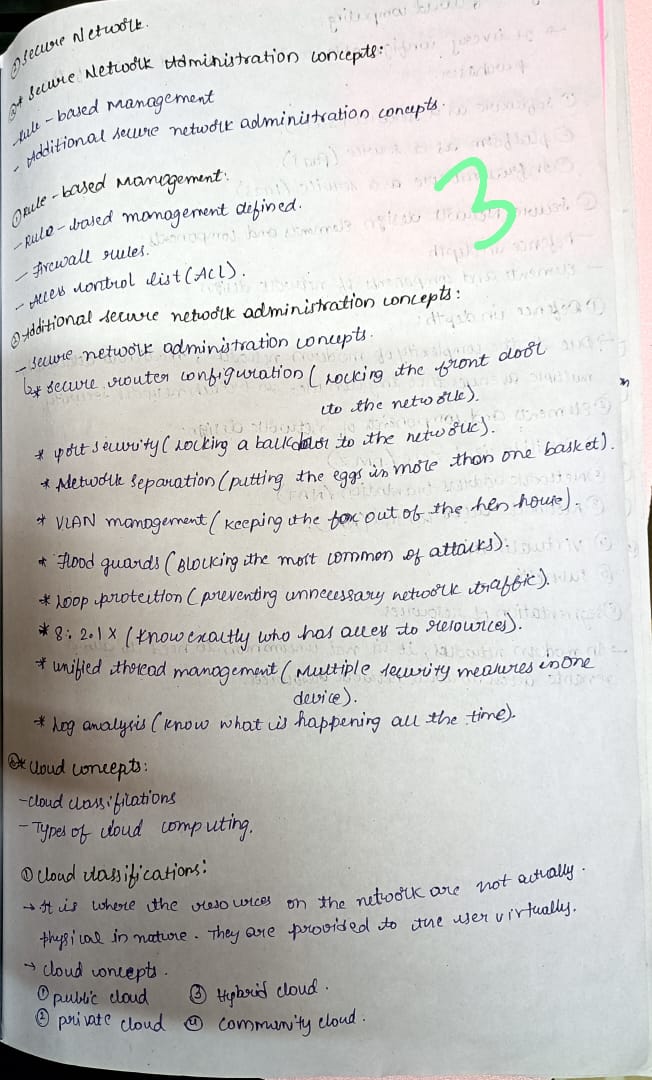 ① secure Network.
* secure Network Administration concepts:
- Rule-based Management
- Additional secure network administration concepts.
① Rule-based Management:
- Rule-based management defined.
- firewall rules.
- Access control list (ACL).
② Additional secure network administration concepts:
- secure network administration concepts.
↳ * secure router configuration (Locking the front door
to the network).
* port security (Locking a backdoor to the network).
* Network Separation (putting the eggs in more than one basket).
* VLAN management (Keeping the fox out of the hen house).
* Flood guards (Blocking the most common of attacks).
* Loop protection (preventing unnecessary network traffic).
* 8: 2.1x (Know exactly who has access to resources).
* unified thread management (Multiple security measures in one
device).
* Log analysis (Know what is happening all the time).
* cloud concepts:
- cloud classifications
- Types of cloud computing.
① cloud classifications:
→ It is where the resources on the network are not actually
physical in nature. They are provided to the user virtually.
→ cloud concepts.
① public cloud ③ Hybrid cloud.
② private cloud ④ community cloud.
3